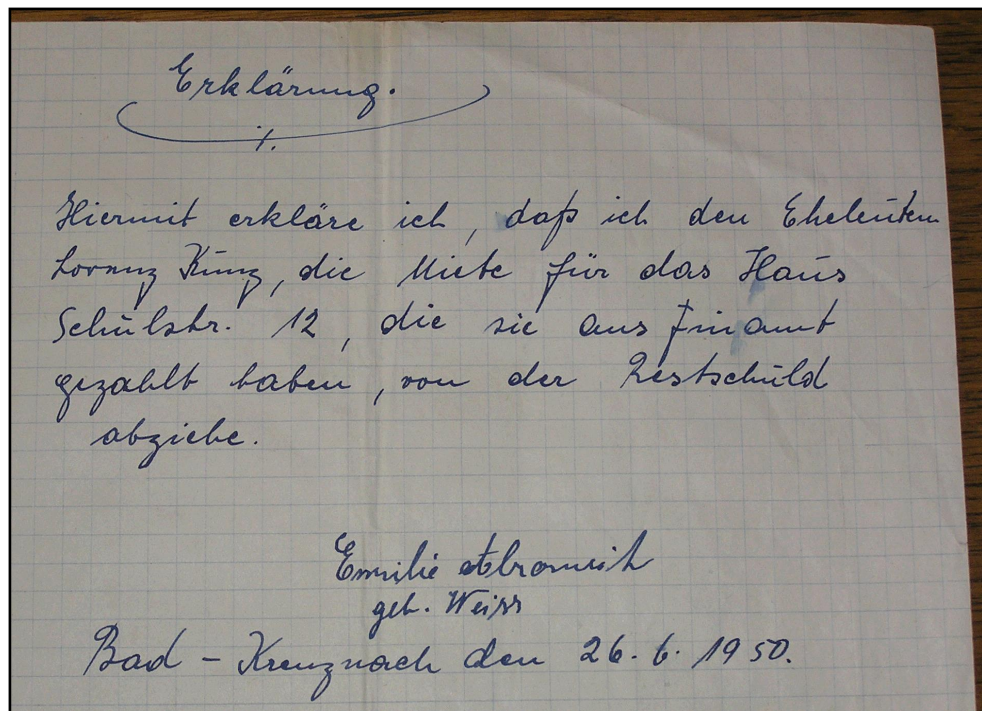 Erklärung.
./.
Hiermit erkläre ich, daß ich den Eheleuten
Lorenz Kunz, die Miete für das Haus
Schulstr. 12, die sie ans Finamt
gezahlt haben, von der Restschuld
abziehe.
Emilie
geb. Weiss
Bad - Kreuznach den 26. 6. 1950.